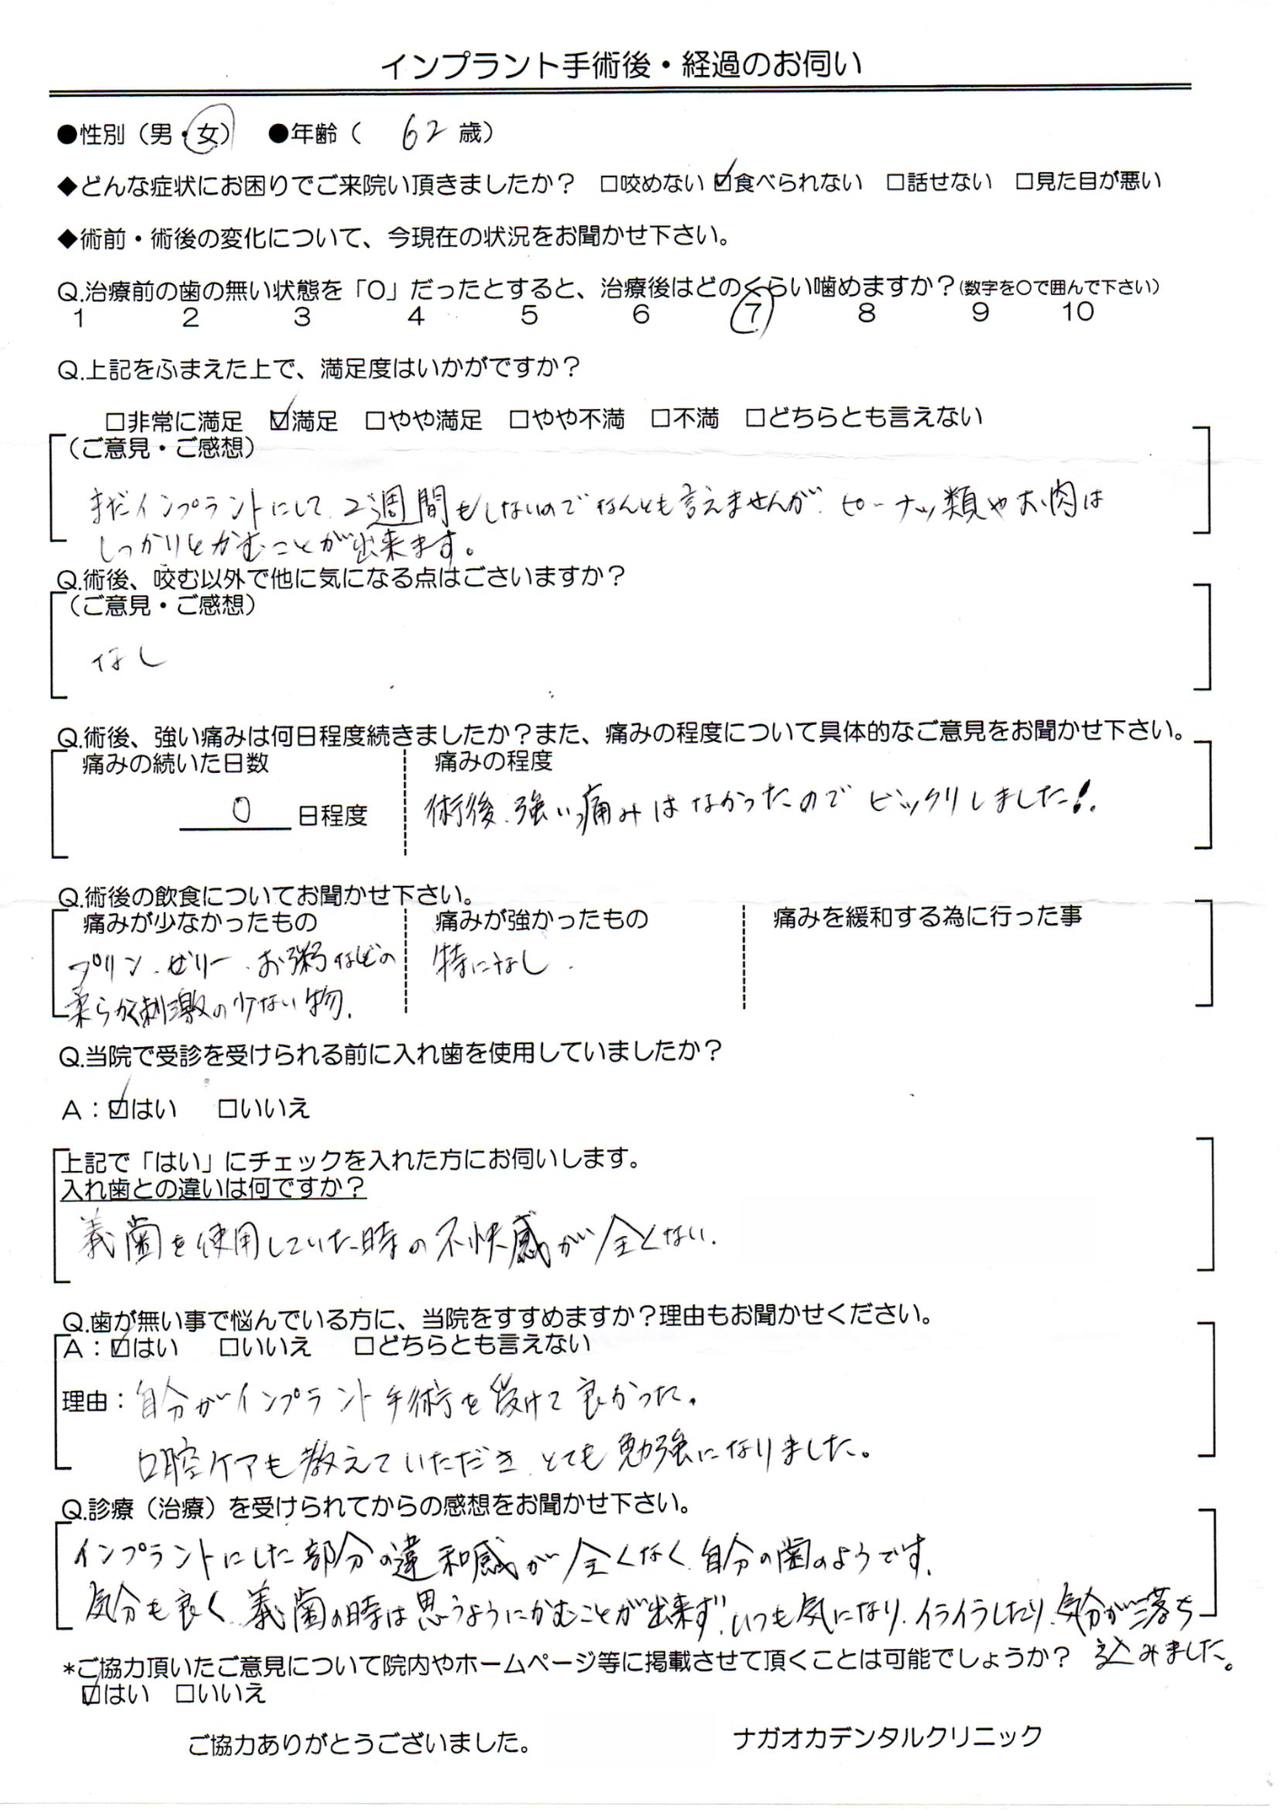 インプラント手術後・経過のお伺い
●性別（男・女） ●年齢（ 62 歳）
◆どんな症状にお困りでご来院い頂きましたか？ □咬めない ☑食べられない □話せない □見た目が悪い
◆術前・術後の変化について、今現在の状況をお聞かせ下さい。
Q.治療前の歯の無い状態を「0」だったとすると、治療後はどのくらい噛めますか？(数字を〇で囲んで下さい)
1 2 3 4 5 6 7 8 9 10
Q.上記をふまえた上で、満足度はいかがですか？
□非常に満足 ☑満足 □やや満足 □やや不満 □不満 □どちらとも言えない
（ご意見・ご感想）
まだインプラントにして、2週間もしないのでなんとも言えませんが、ピーナッツ類やお肉は
しっかりとかむことが出来ます。
Q.術後、咬む以外で他に気になる点はごさいますか？
（ご意見・ご感想）
なし
Q.術後、強い痛みは何日程度続きましたか？また、痛みの程度について具体的なご意見をお聞かせ下さい。
痛みの続いた日数 痛みの程度
0 日程度 術後、強い痛みはなかったのでビックリしました!.
Q.術後の飲食についてお聞かせ下さい。
痛みが少なかったもの 痛みが強かったもの 痛みを緩和する為に行った事
プリン、ゼリー、お粥などの 特になし.
柔らかく刺激の少ない物.
Q.当院で受診を受けられる前に入れ歯を使用していましたか？
A：☑はい □いいえ
上記で「はい」にチェックを入れた方にお伺いします。
入れ歯との違いは何ですか？
義歯を使用していた時の不快感が全くない.
Q.歯が無い事で悩んでいる方に、当院をすすめますか？理由もお聞かせください。
A：☑はい □いいえ □どちらとも言えない
理由：自分がインプラント手術を受けて良かった。
口腔ケアも教えていただき、とても勉強になりました。
Q.診療（治療）を受けられてからの感想をお聞かせ下さい。
インプラントにした部分の違和感が全くなく、自分の歯のようです.
気分も良く、義歯の時は思うようにかむことが出来ず、いつも気になり、イライラしたり、気分が落ち
込みました。
*ご協力頂いたご意見について院内やホームページ等に掲載させて頂くことは可能でしょうか？
☑はい □いいえ
ご協力ありがとうございました。 ナガオカデンタルクリニック